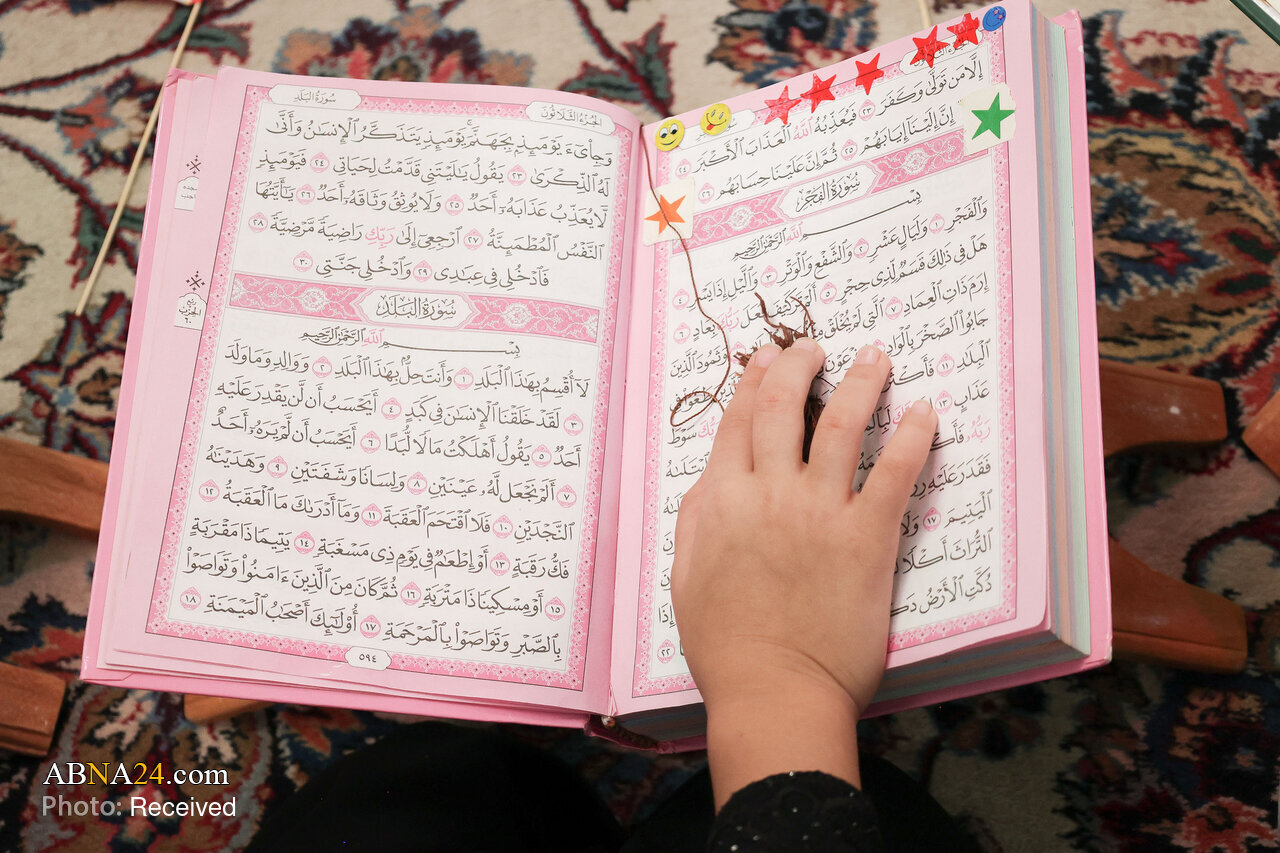 إِلَّا مَن تَوَلَّىٰ وَكَفَرَ ٢٣ فَيُعَذِّبُهُ ٱللَّهُ ٱلْعَذَابَ ٱلْأَكْبَرَ ٢٤
إِنَّ إِلَيْنَآ إِيَابَهُمْ ٢٥ ثُمَّ إِنَّ عَلَيْنَا حِسَابَهُم ٢٦
سُورَةُ الفَجْرِ
بِسْمِ ٱللَّهِ ٱلرَّحْمَٰنِ ٱلرَّحِيمِ
وَٱلْفَجْرِ ١ وَلَيَالٍ عَشْرٍ ٢ وَٱلشَّفْعِ وَٱلْوَتْرِ ٣ وَٱلَّيْلِ إِذَا يَسْرِ ٤
هَلْ فِى ذَٰلِكَ قَسَمٌ لِّذِى حِجْرٍ ٥ أَلَمْ تَرَ كَيْفَ فَعَلَ رَبُّكَ بِعَادٍ ٦
إِرَمَ ذَاتِ ٱلْعِمَادِ ٧ ٱلَّتِى لَمْ يُخْلَقْ وَثَمُودَ ٱلَّذِينَ
جَابُوا۟ ٱلصَّخْرَ بِٱلْوَادِ
ٱلْبِلَٰدِ ١١ سَوْطَ
عَذَابٍ ١٣
رَبُّهُۥ
فَقَدَرَ عَلَيْهِ
ٱلْيَتِيمَ ١٧
ٱلتُّرَاثَ أَكْلًا
دُكَّتِ ٱلْأَرْضُ
٢٢
سُورَةُ البَلَدِ
الجُزْءُ الثَّلَاثُونَ
وَجِا۟ىٓءَ يَوْمَئِذٍۭ بِجَهَنَّمَ ۚ يَوْمَئِذٍ يَتَذَكَّرُ ٱلْإِنسَٰنُ وَأَنَّىٰ
لَهُ ٱلذِّكْرَىٰ ٢٣ يَقُولُ يَٰلَيْتَنِى قَدَّمْتُ لِحَيَاتِى ٢٤ فَيَوْمَئِذٍ
لَّا يُعَذِّبُ عَذَابَهُۥٓ أَحَدٌ ٢٥ وَلَا يُوثِقُ وَثَاقَهُۥٓ أَحَدٌ ٢٦ يَٰٓأَيَّتُهَا
ٱلنَّفْسُ ٱلْمُطْمَئِنَّةُ ٢٧ ٱرْجِعِىٓ إِلَىٰ رَبِّكِ رَاضِيَةً مَّرْضِيَّةً ٢٨
فَٱدْخُلِى فِى عِبَٰدِى ٢٩ وَٱدْخُلِى جَنَّتِى ٣٠
سُورَةُ البَلَدِ
بِسْمِ ٱللَّهِ ٱلرَّحْمَٰنِ ٱلرَّحِيمِ
لَآ أُقْسِمُ بِهَٰذَا ٱلْبَلَدِ ١ وَأَنتَ حِلٌّۢ بِهَٰذَا ٱلْبَلَدِ ٢ وَوَالِدٍ وَمَا وَلَدَ
٣ لَقَدْ خَلَقْنَا ٱلْإِنسَٰنَ فِى كَبَدٍ ٤ أَيَحْسَبُ أَن لَّن يَقْدِرَ عَلَيْهِ
أَحَدٌ ٥ يَقُولُ أَهْلَكْتُ مَالًا لُّبَدًا ٦ أَيَحْسَبُ أَن لَّمْ يَرَهُۥٓ أَحَدٌ
٧ أَلَمْ نَجْعَل لَّهُۥ عَيْنَيْنِ ٨ وَلِسَانًا وَشَفَتَيْنِ ٩ وَهَدَيْنَٰهُ
ٱلنَّجْدَيْنِ ١٠ فَلَا ٱقْتَحَمَ ٱلْعَقَبَةَ ١١ وَمَآ أَدْرَىٰكَ مَا ٱلْعَقَبَةُ ١٢
فَكُّ رَقَبَةٍ ١٣ أَوْ إِطْعَٰمٌ فِى يَوْمٍ ذِى مَسْغَبَةٍ ١٤ يَتِيمًا ذَا مَقْرَبَةٍ
١٥ أَوْ مِسْكِينًا ذَا مَتْرَبَةٍ ١٦ ثُمَّ كَانَ مِنَ ٱلَّذِينَ ءَامَنُوا۟ وَتَوَاصَوْا۟
بِٱلصَّبْرِ وَتَوَاصَوْا۟ بِٱلْمَرْحَمَةِ ١٧ أُو۟لَٰٓئِكَ أَصْحَٰبُ ٱلْمَيْمَنَةِ ١٨
٥٩٤
ABNA24.com
Photo: Received